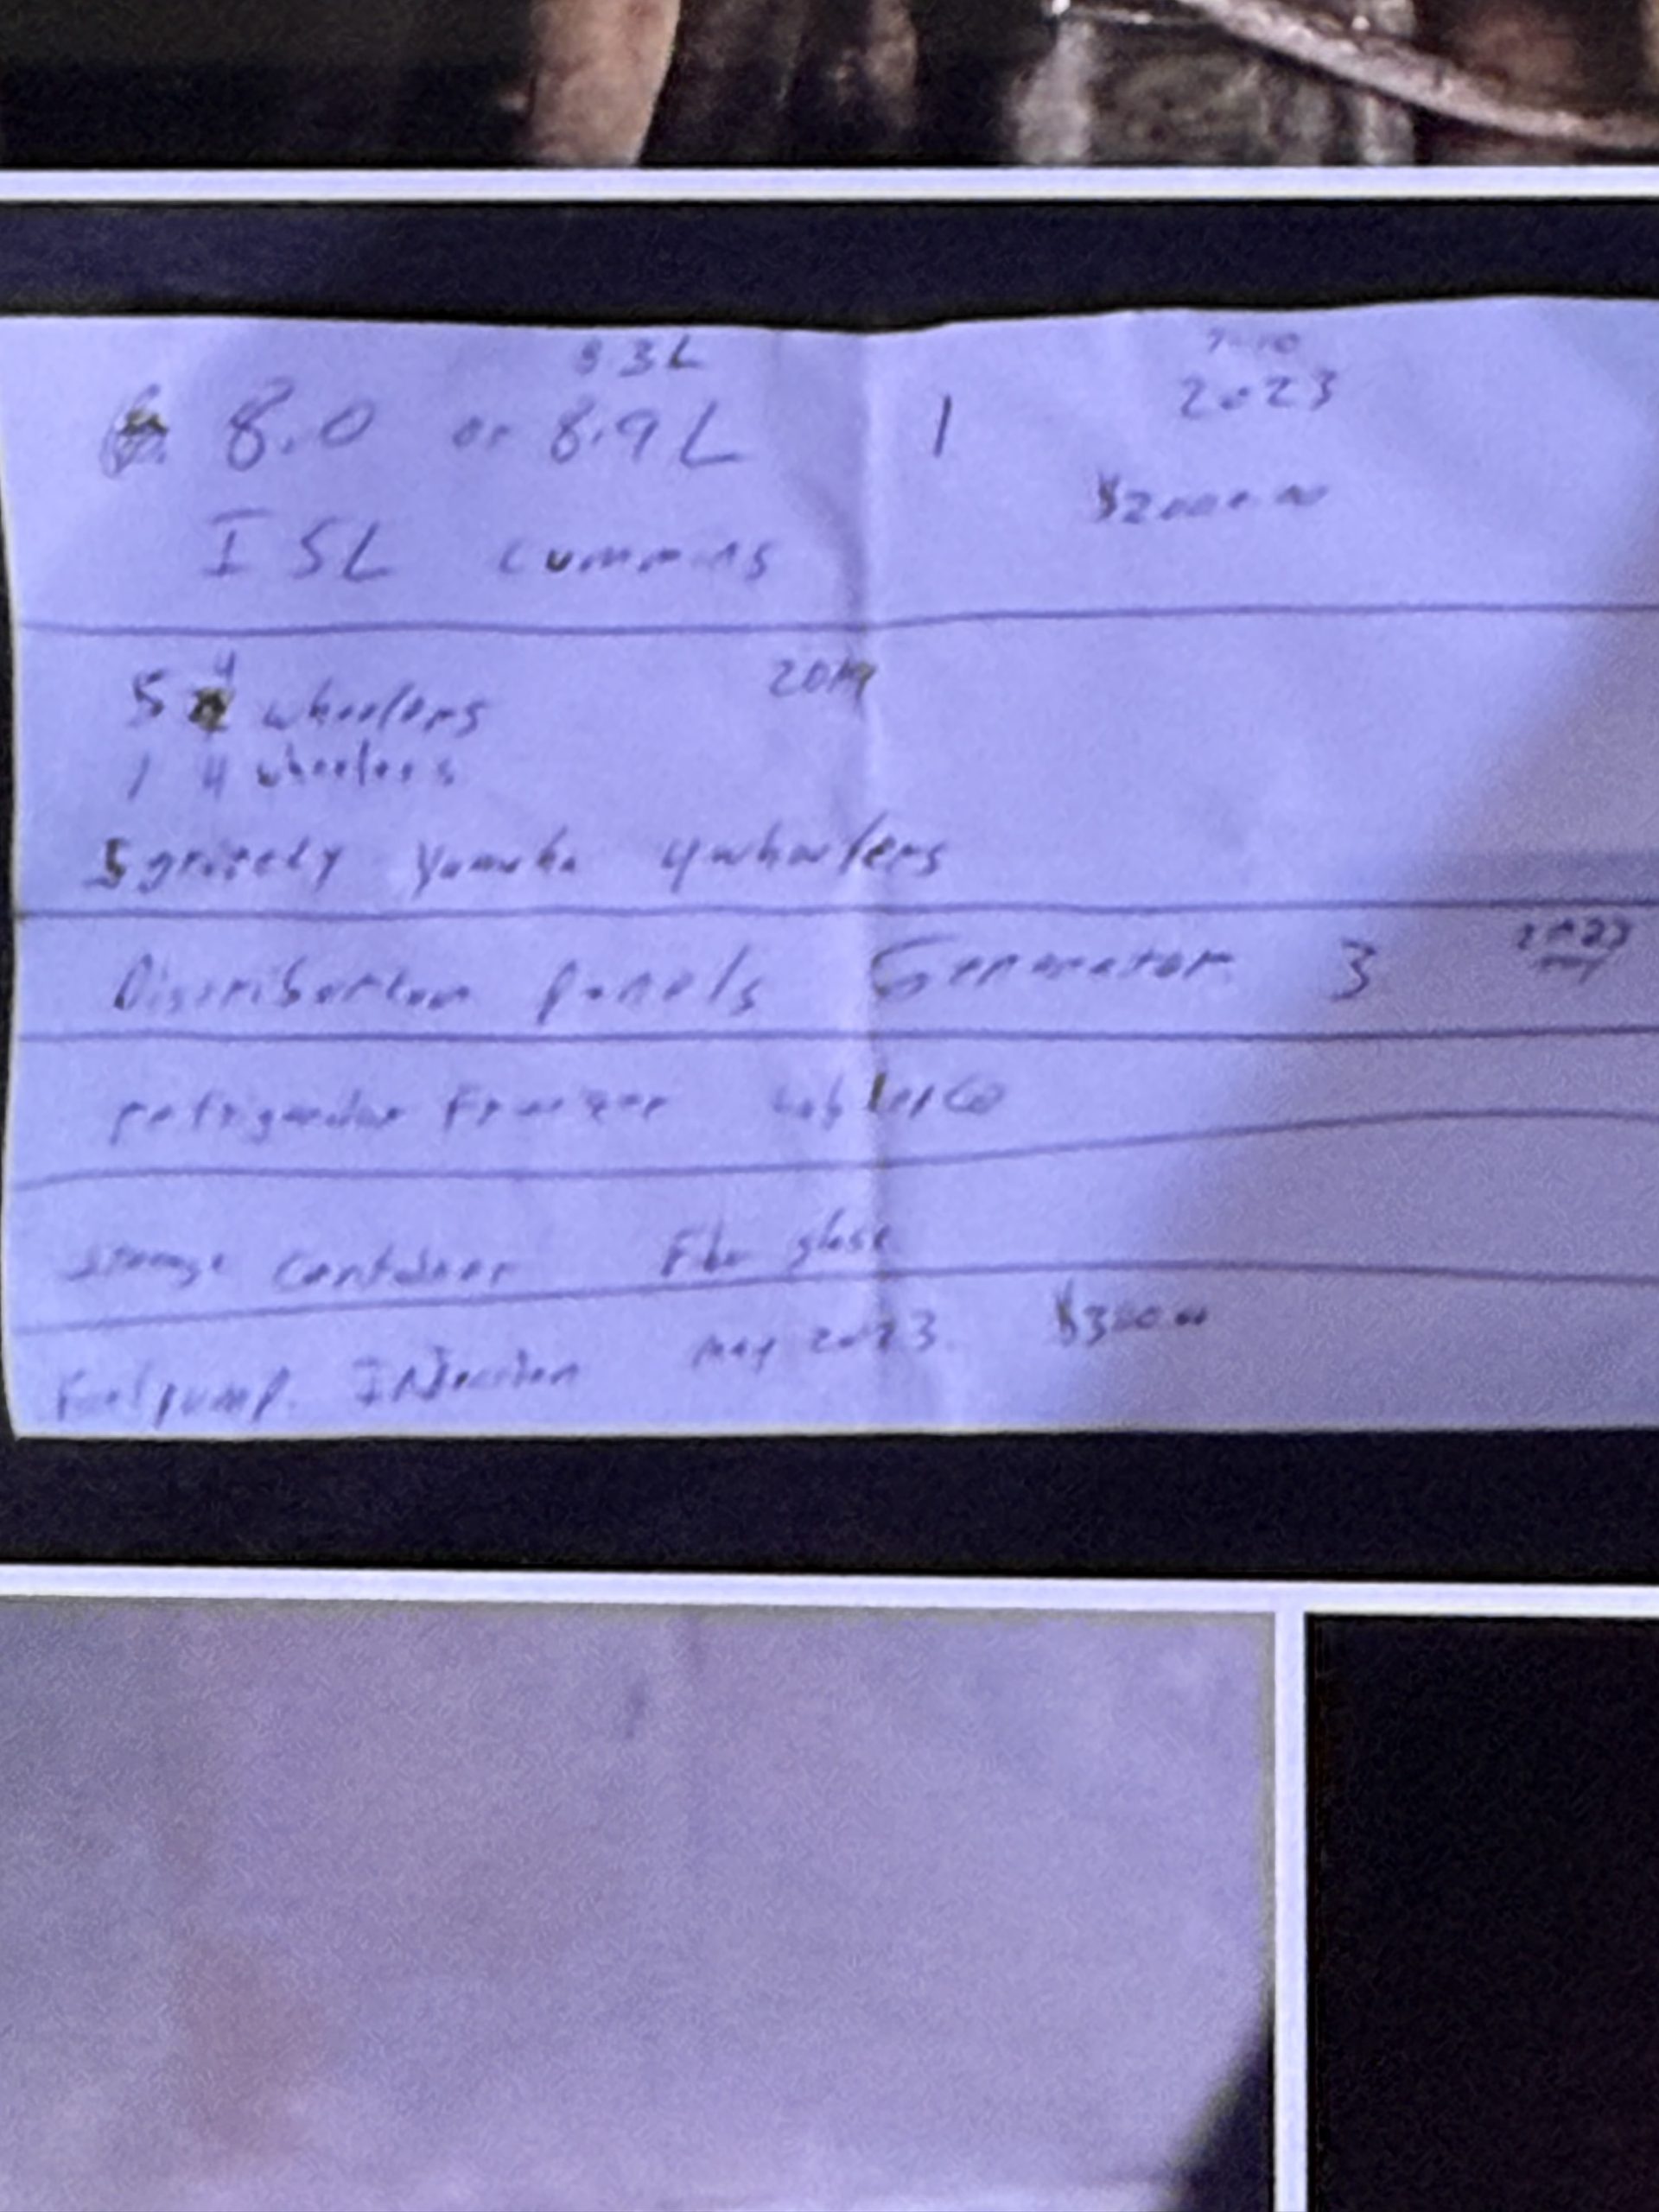 8.3L
8.0 or 8.9L 1 2023
ISL Cummins
5 4 wheelers
1 4 wheelers
5 grizzely Yamaha 4wheelers
Distribution panels Generator 3
refrigerator Freezer
Storage Container Fiber glass
Fuel pump. INJection may 2023